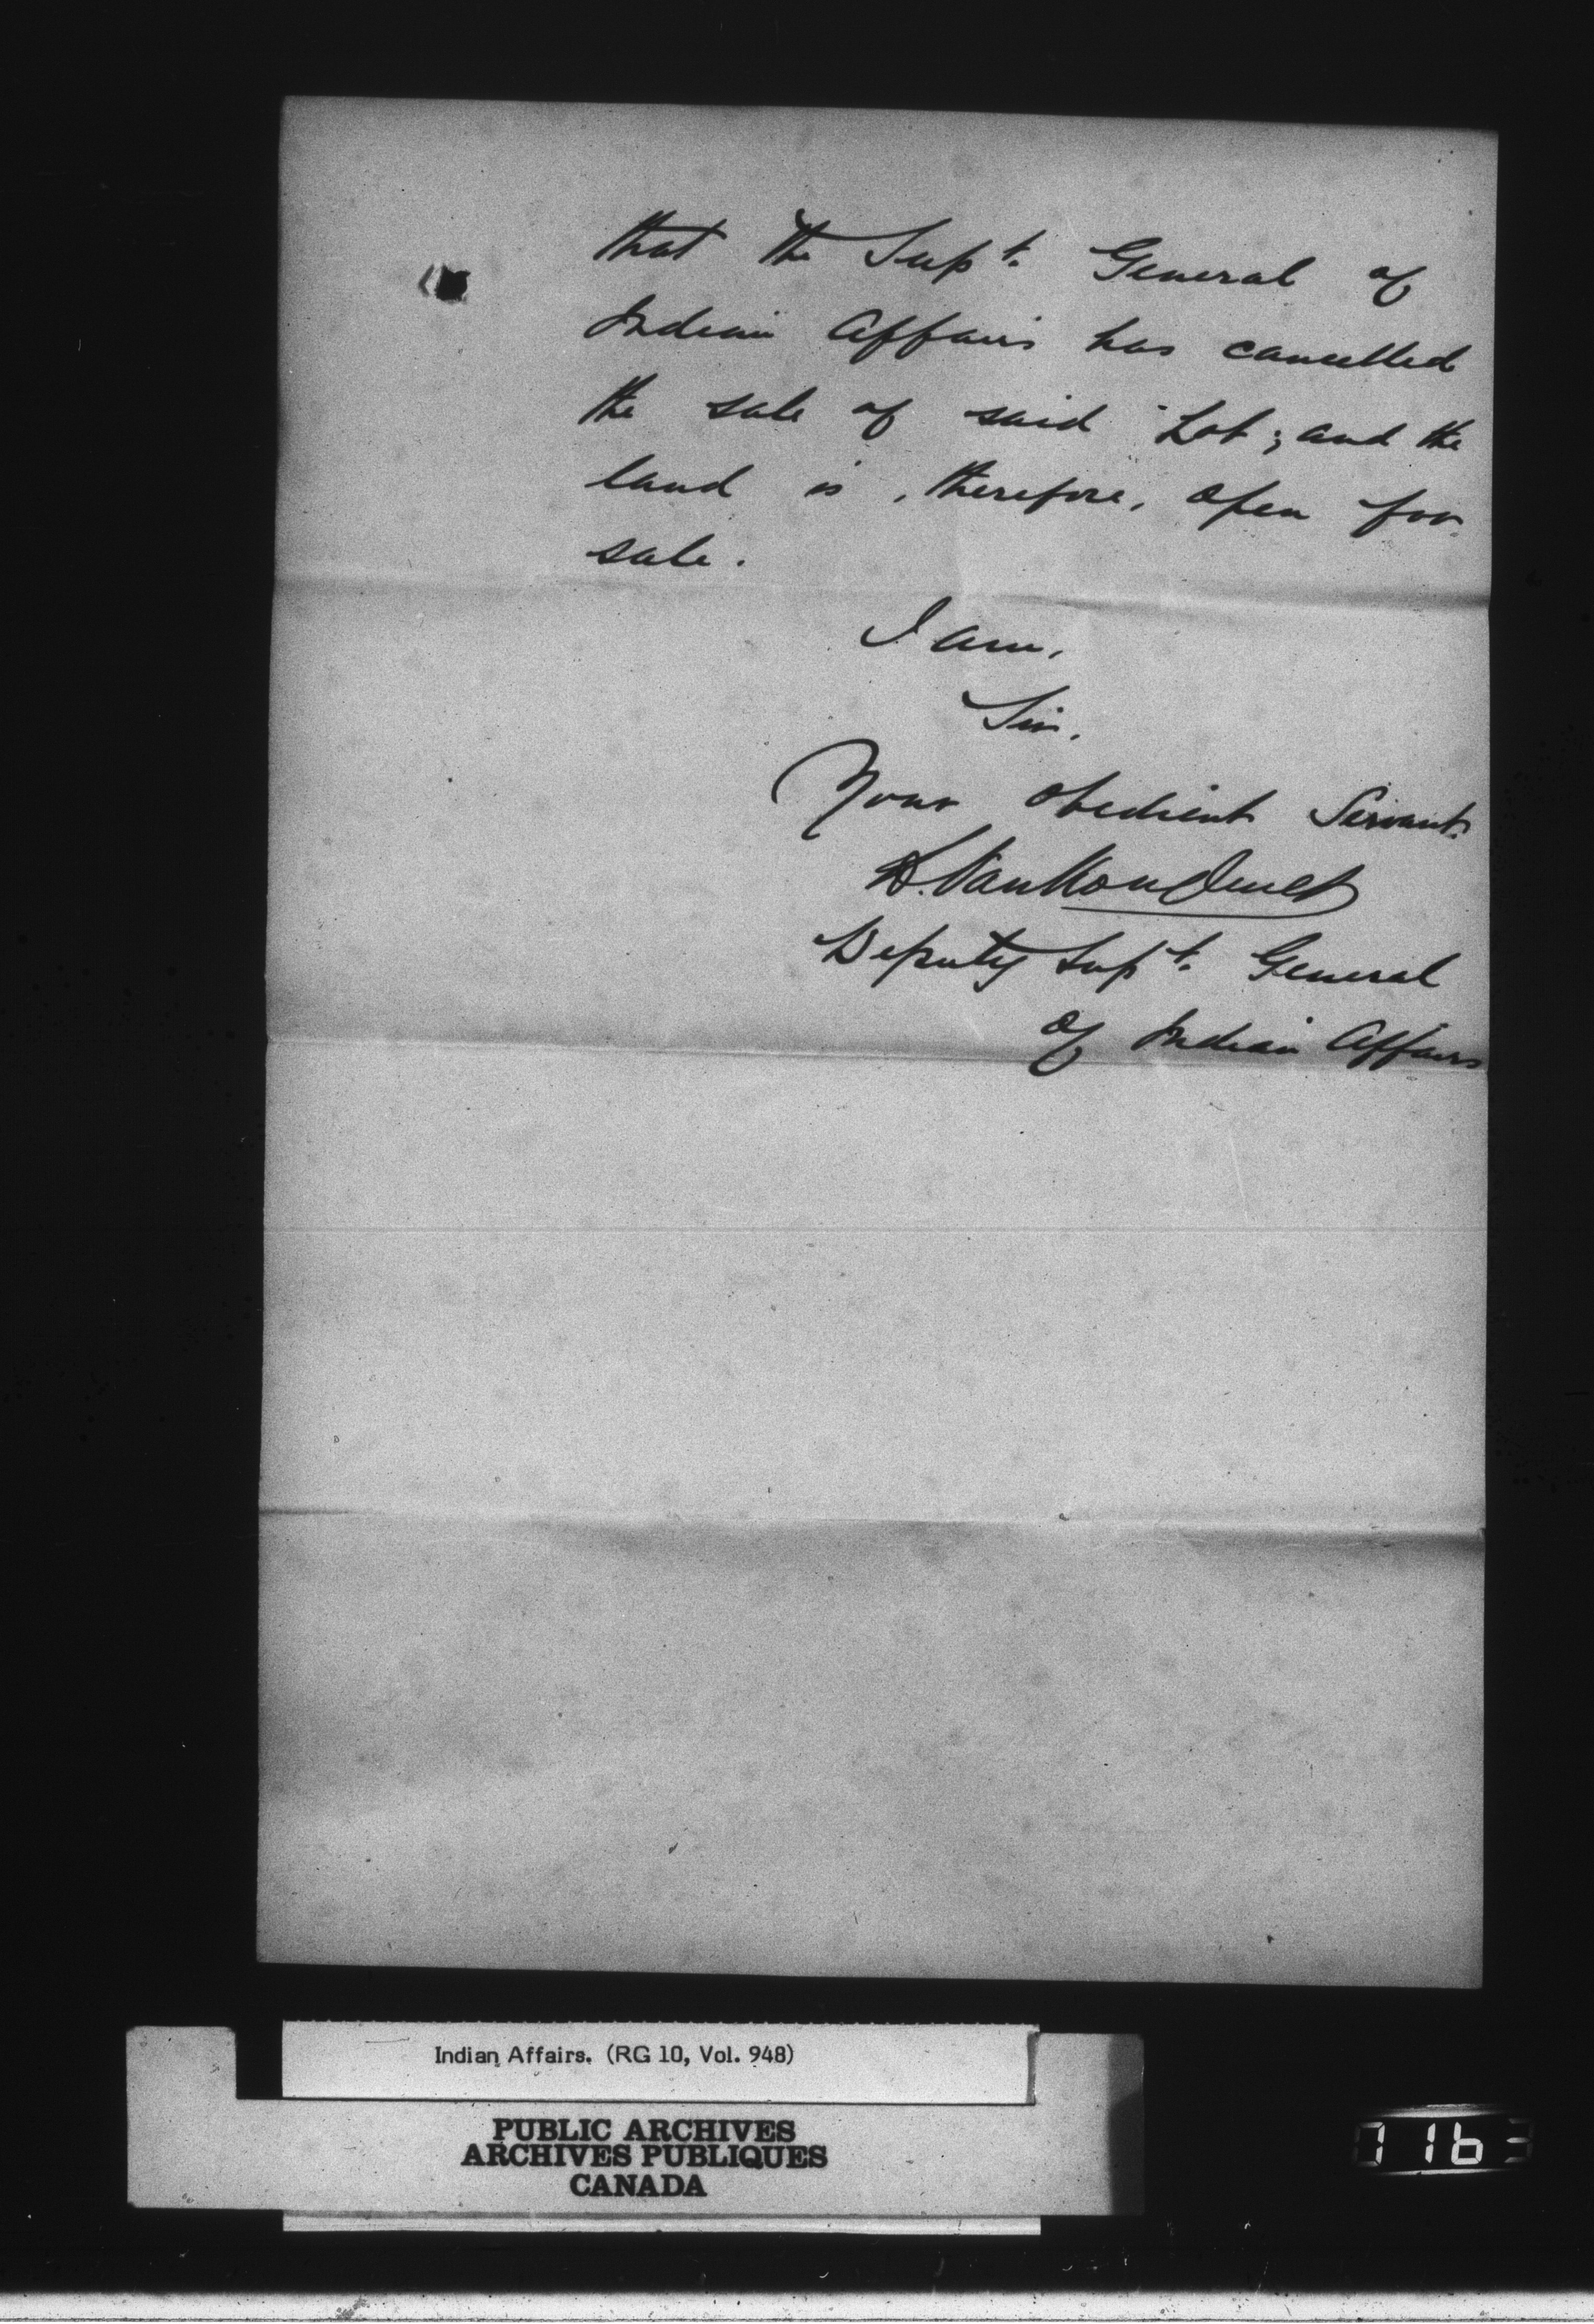 that the Supt. General of
Indian Affairs has cancelled
the sale of said Lot; and the
land is, therefore, open for
sale.
I am,
Sir,
Your obedient Servant.
L. VanKoughnet
Deputy Supt. General
of Indian Affairs
Indian Affairs. (RG 10, Vol. 948)
PUBLIC ARCHIVES
ARCHIVES PUBLIQUES
CANADA